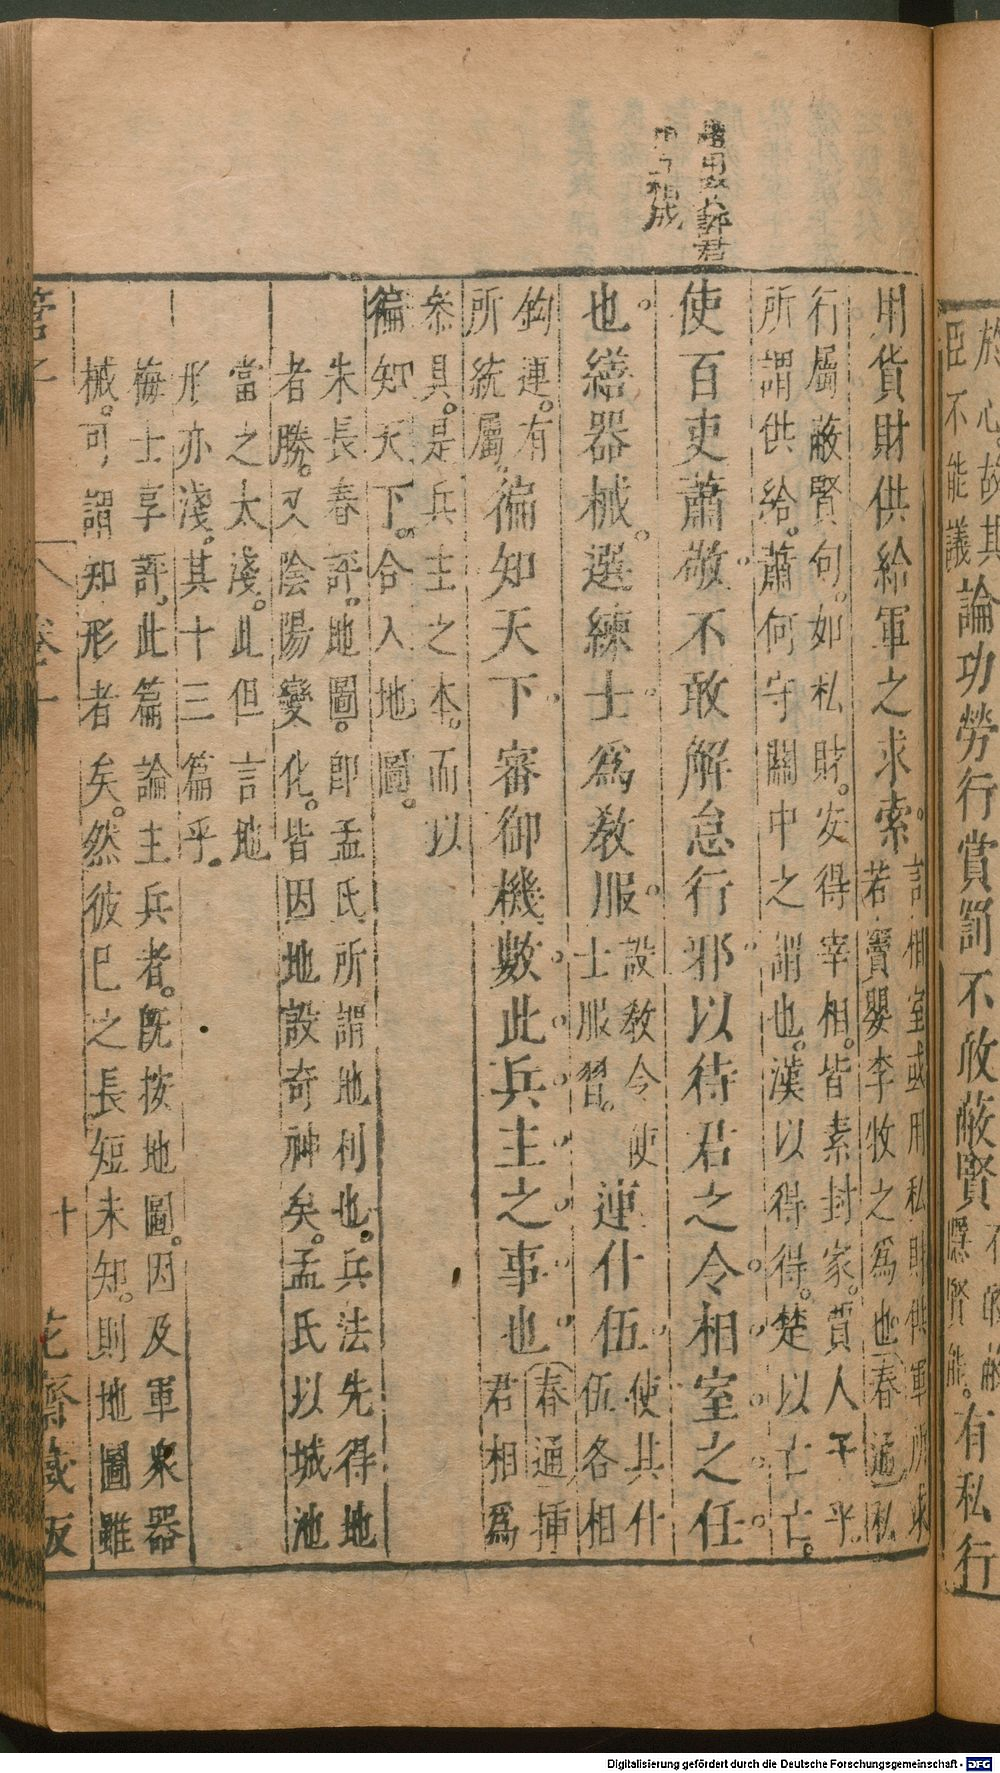 於心故其
臣不能議
論功勞行賞罰不敢蔽賢
不敢蔽
隱賢能。
有私行
評君
相成
用貨財供給軍之求索。
言相室或用私財供軍所求
若竇嬰李牧之為也春通私
行屬蔽賢句如私財。安得宰相。皆素封家。賈人子乎。
所謂供給。蕭何守關中之謂也。漢以得得。楚以亡亡。
使百吏蕭敬不敢解怠行邪以待君之令相室之任
也繕器械。選練士為教服
設教令使
士服習。
連什伍
使其什
伍各相
鉤連。有
所統屬。
徧知天下審御機數此兵主之事也
春通揷
君相為
叅具。是兵主之本。而以
徧知天下。合入地圖。
朱長春評。地圖。即孟氏所謂地利也。兵法先得地
者勝。又陰陽變化。皆因地設奇神矣。孟氏以城池
當之太淺。此但言地
形亦淺。其十三篇乎。
梅士享評。此篇論主兵者。旣按地圖。因及軍衆器
械。可謂知形者矣。然彼已之長短未知。則地圖雖
管子
卷十
十
花齋藏板
Digitalisierung gefördert durch die Deutsche Forschungsgemeinschaft - DFG